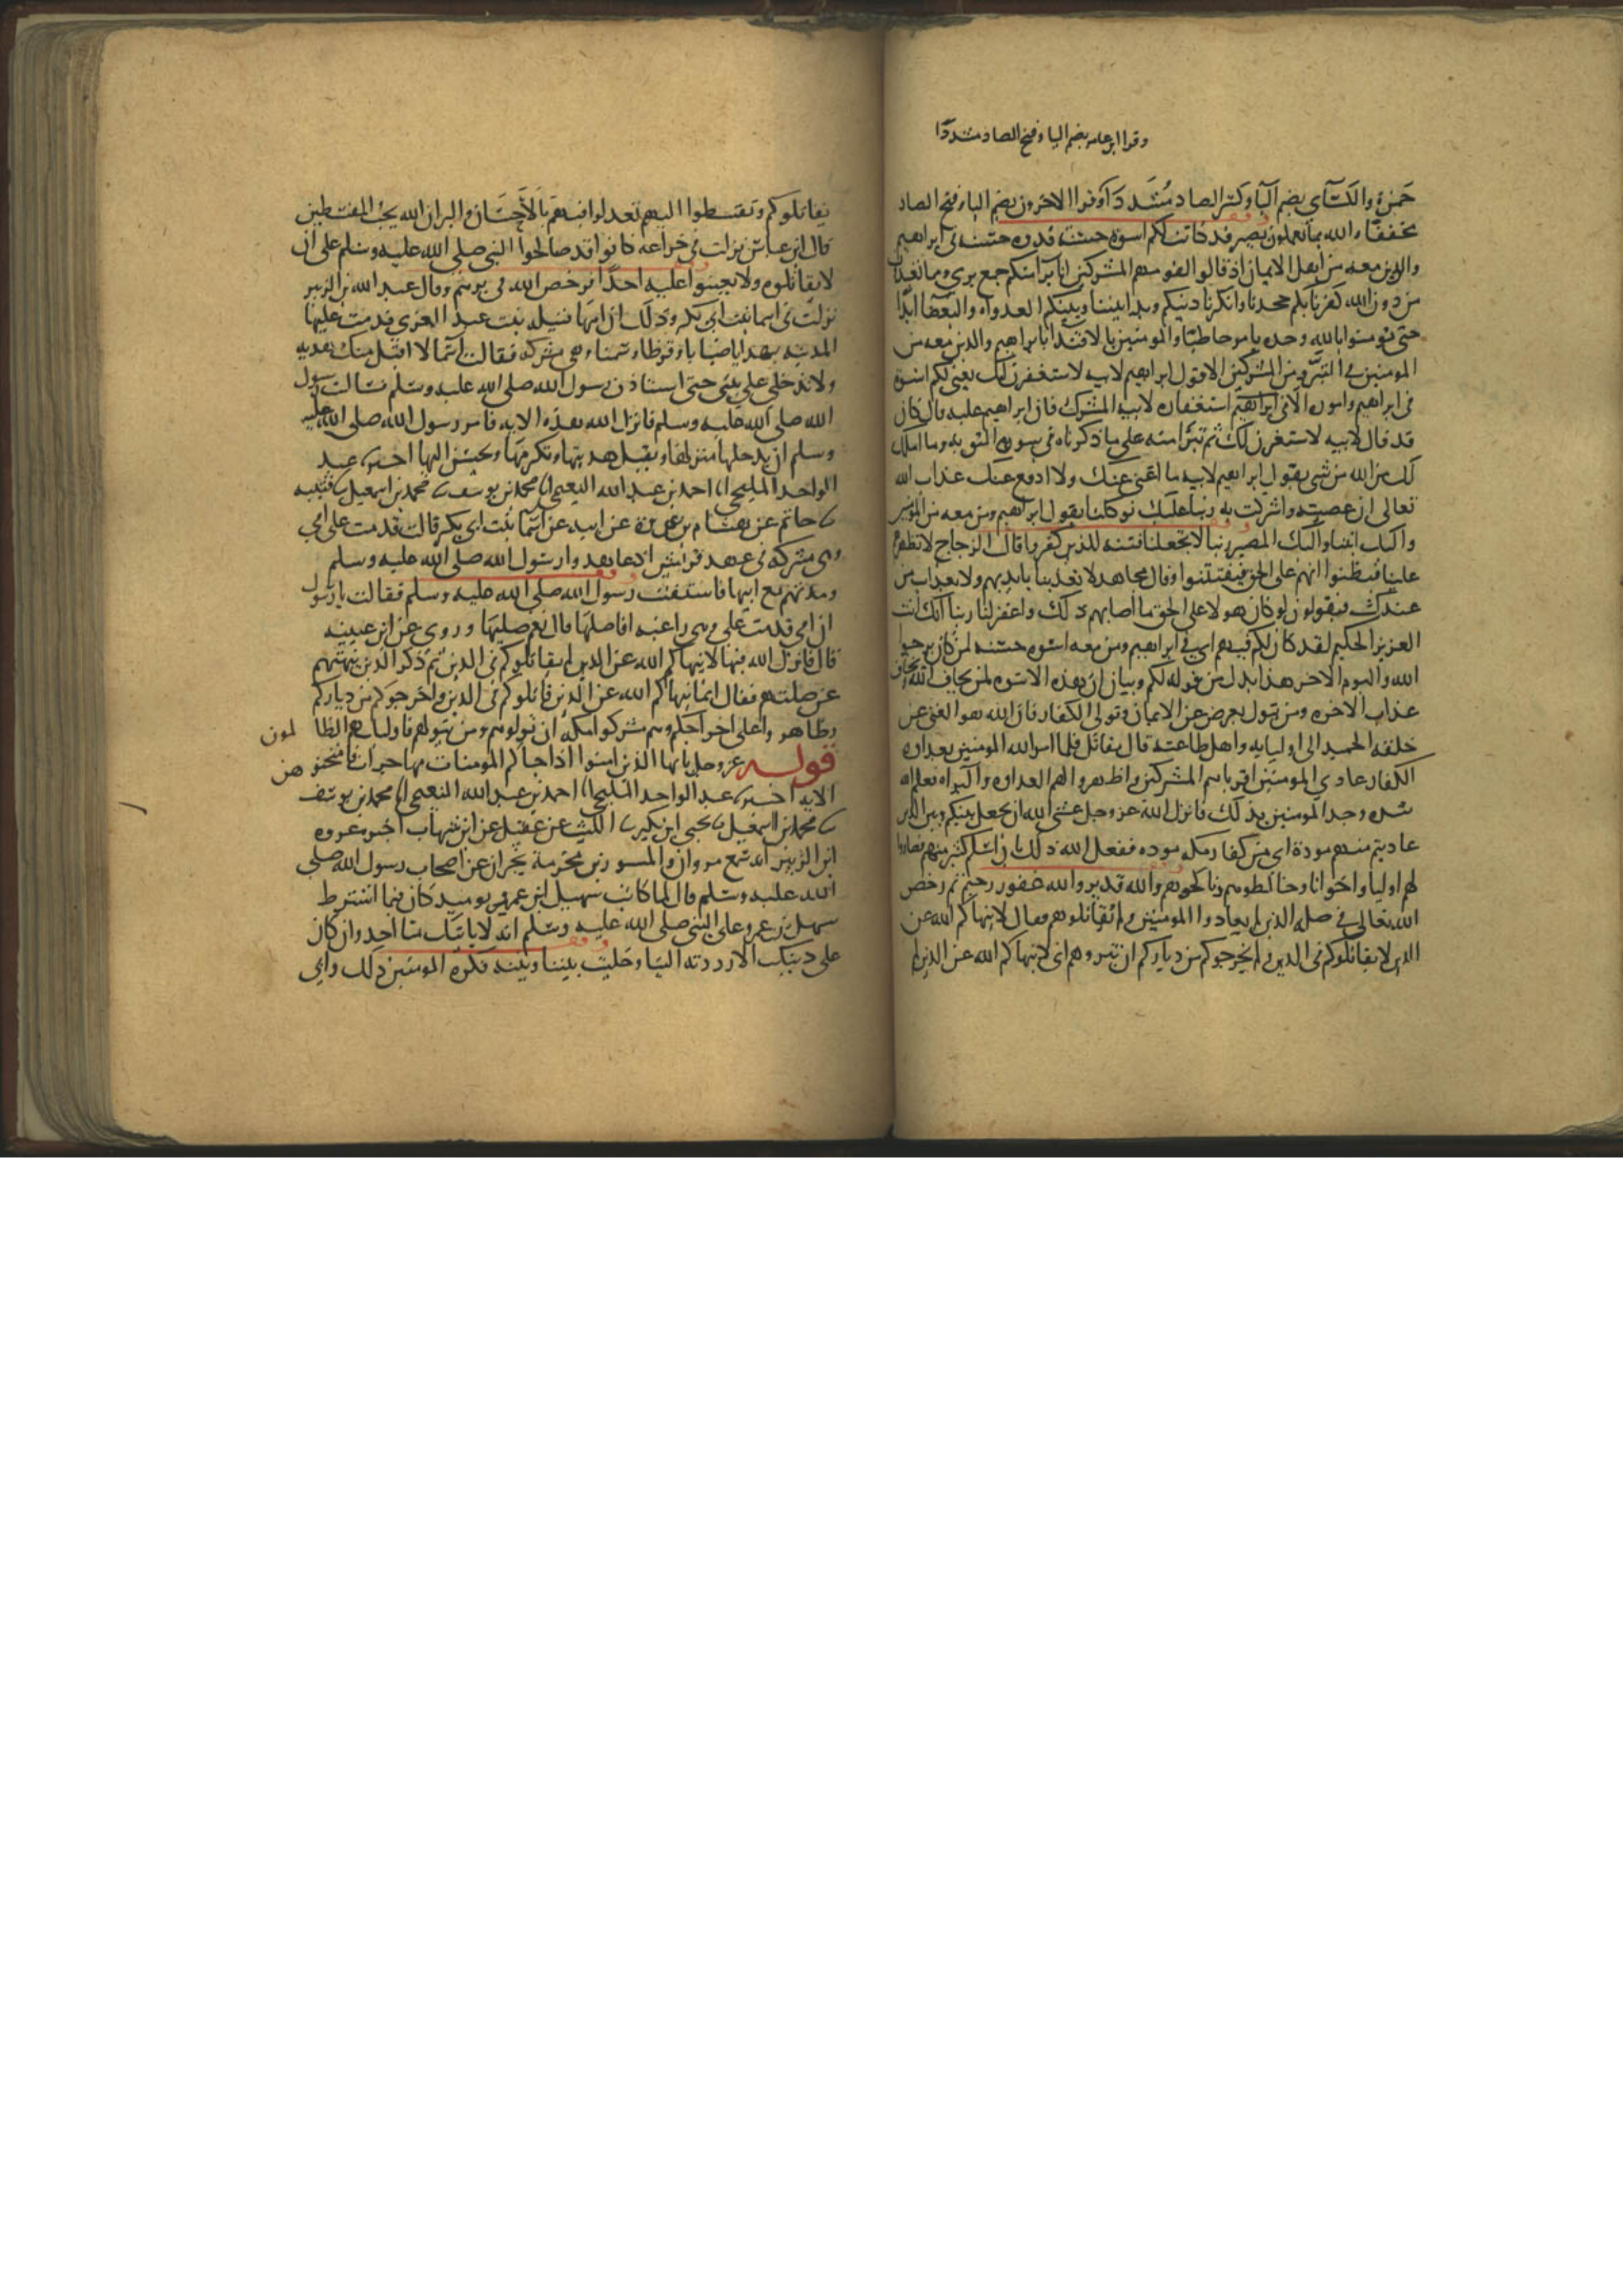 وقرا ابن عامر بضم اليا وفتح الصاد مشددا
حمزة والكسآي بضم اليا وكسر الصاد مشددا وقرا الاخرون بضم اليا وفتح الصاد
مخففا والله بما تعملون بصير قد كانت لكم اسوة حسنة قدوه حسنه في ابراهيم
والذين معه من اهل الايمان اذ قالوا لقومهم المشركين انا برآ منكم جمع بري ومما تعبدون
من دون الله كفرنا بكم جحدنا وانكرنا دينكم وبدا بيننا وبينكم العداوه والبغضا ابدا
حتى تومنوا بالله وحده يامر حاطبا والمومنين بالاقتدا بابراهيم والذين معه من
المومنين في التبرؤ من المشركين الا قول ابراهيم لابيه لاستغفرن لك يعني لكم اسوة
في ابراهيم واموره الا في ابراهيم استغفاره لابيه المشرك فان ابراهيم عليه قال كان
قد قال لابيه لاستغفرن لك ثم تبرا منه على ما ذكرناه في سورة التوبه وما املك
لك من الله من شي يقول ابراهيم لابيه ما اغني عنك ولا ادفع عنك عذاب الله
تعالى ان عصيته واشركت به ربنا عليك توكلنا يقول ابراهيم ومن معه من المومنين
واليك انبنا واليك المصير ربنا لا تجعلنا فتنه للذين كفروا قال الزجاج لا تظهرهم
علينا فيظنوا انهم على الحق فيفتتنوا وقال مجاهد لا تعذبنا بايديهم ولا بعذاب من
عندك فيقولون لو كان هولا على الحق ما اصابهم ذلك واغفر لنا ربنا انك انت
العزيز الحكيم لقد كان لكم فيهم اي في ابراهيم ومن معه اسوه حسنه لمن كان يرجوا
الله واليوم الاخر هذا بدل من قوله لكم وبيان ان هذه الاسوه لمن يخاف الله ويخاف
عذاب الاخره ومن يتول يعرض عن الايمان وتولي الكفار فان الله هو الغني عن
خلقه الحميد الى اوليايه واهل طاعته قال مقاتل فلما امر الله المومنين بعداوه
الكفار عادي المومنين اقرباهم المشركين واظهروا لهم العداوه والبراه يعلم الله
شده وجد المومنين بذلك فانزل الله عز وجل عسى الله ان يجعل بينكم وبين الذين
عاديتم منهم مودة اي من كفار مكه موده ففعل الله ذلك بان اسلم كثير منهم فصاروا
لهم اوليا واخوانا وخالطوهم وناكحوهم والله قدير والله غفور رحيم ثم رخص
الله تعالى في صله الذين لم يعادوا المومنين ولم يقاتلوهم فقال لا ينهاكم الله عن
الذين لا يقاتلوكم في الدين ولم يخرجوكم من دياركم ان تبروهم اى لا ينهاكم الله عن الذين لم
يقاتلوكم وتقسطوا اليهم تعدلوا فيهم بالاحسان والبر ان الله يحب المقسطين
قال ابن عباس نزلت في خزاعه كانوا قد صالحوا النبي صلى الله عليه وسلم على ان
لا يقاتلوه ولا يعينوا عليه احدا فرخص الله في برهم وقال عبد الله بن الزبير
نزلت في اسما بنت ابي بكر وذلك ان امها قتيله بنت عبد العزي قدمت عليها
المدينه بهدايا ضبابا وقرظا وسمنا وهي مشركه فقالت اسما لا اقبل منك هديه
ولا تدخلي علي بيتي حتى استاذن رسول الله صلى الله عليه وسلم فسالت رسول
الله صلى الله عليه وسلم فانزل الله هذه الايه فامر رسول الله صلى الله عليه
وسلم ان يدخلها منزلها ويقبل هديتها وتكرمها وتحسن اليها اخبرنا عبد
الواحد المليحي انا احمد بن عبد الله النعيمي انا محمد بن يوسف نا محمد بن اسمعيل نا قتيبه
نا حاتم عن هشام بن عروة عن ابيه عن اسما بنت ابي بكر قالت قدمت على امي
وهى مشركه في عهد قريش اذ عاهدوا رسول الله صلى الله عليه وسلم
ومدتهم مع ابيها فاستفتت رسول الله صلى الله عليه وسلم فقالت يا رسول
ان امي قدمت علي وهى راغبه افاصلها قال نعم صليها وروي عن ابن عيينه
قال فانزل الله فيها لا ينهاكم الله عن الذين لم يقاتلوكم في الدين ثم ذكر الذين ينهيهم
عن صلتهم فقال انما ينهاكم الله عن الذين قاتلوكم في الدين واخرجوكم من دياركم
وظاهروا على اخراجكم وهم مشركوا مكه ان تولوهم ومن يتولهم فاوليك هم الظالمون
قوله عز وجل يايها الذين امنوا اذا جاكم المومنات مهاجرات فامتحنوهن
الايه اخبرنا عبد الواحد المليحي انا احمد بن عبد الله النعيمي انا محمد بن يوسف
نا محمد بن اسمعيل نا يحيى ابن بكير نا الليث عن عقيل عن ابن شهاب اخبره عروه
ابن الزبير انه سمع مروان والمسور بن مخرمة يخبران عن اصحاب رسول الله صلى
الله عليه وسلم قال لما كاتب سهيل ابن عمرو يوميد كان فيما اشترط
سهيل بن عمرو على النبي صلى الله عليه وسلم انه لا ياتيك منا احد وان كان
على دينك الا رددته الينا وخليت بيننا وبينه فكره المومنين ذلك وابي